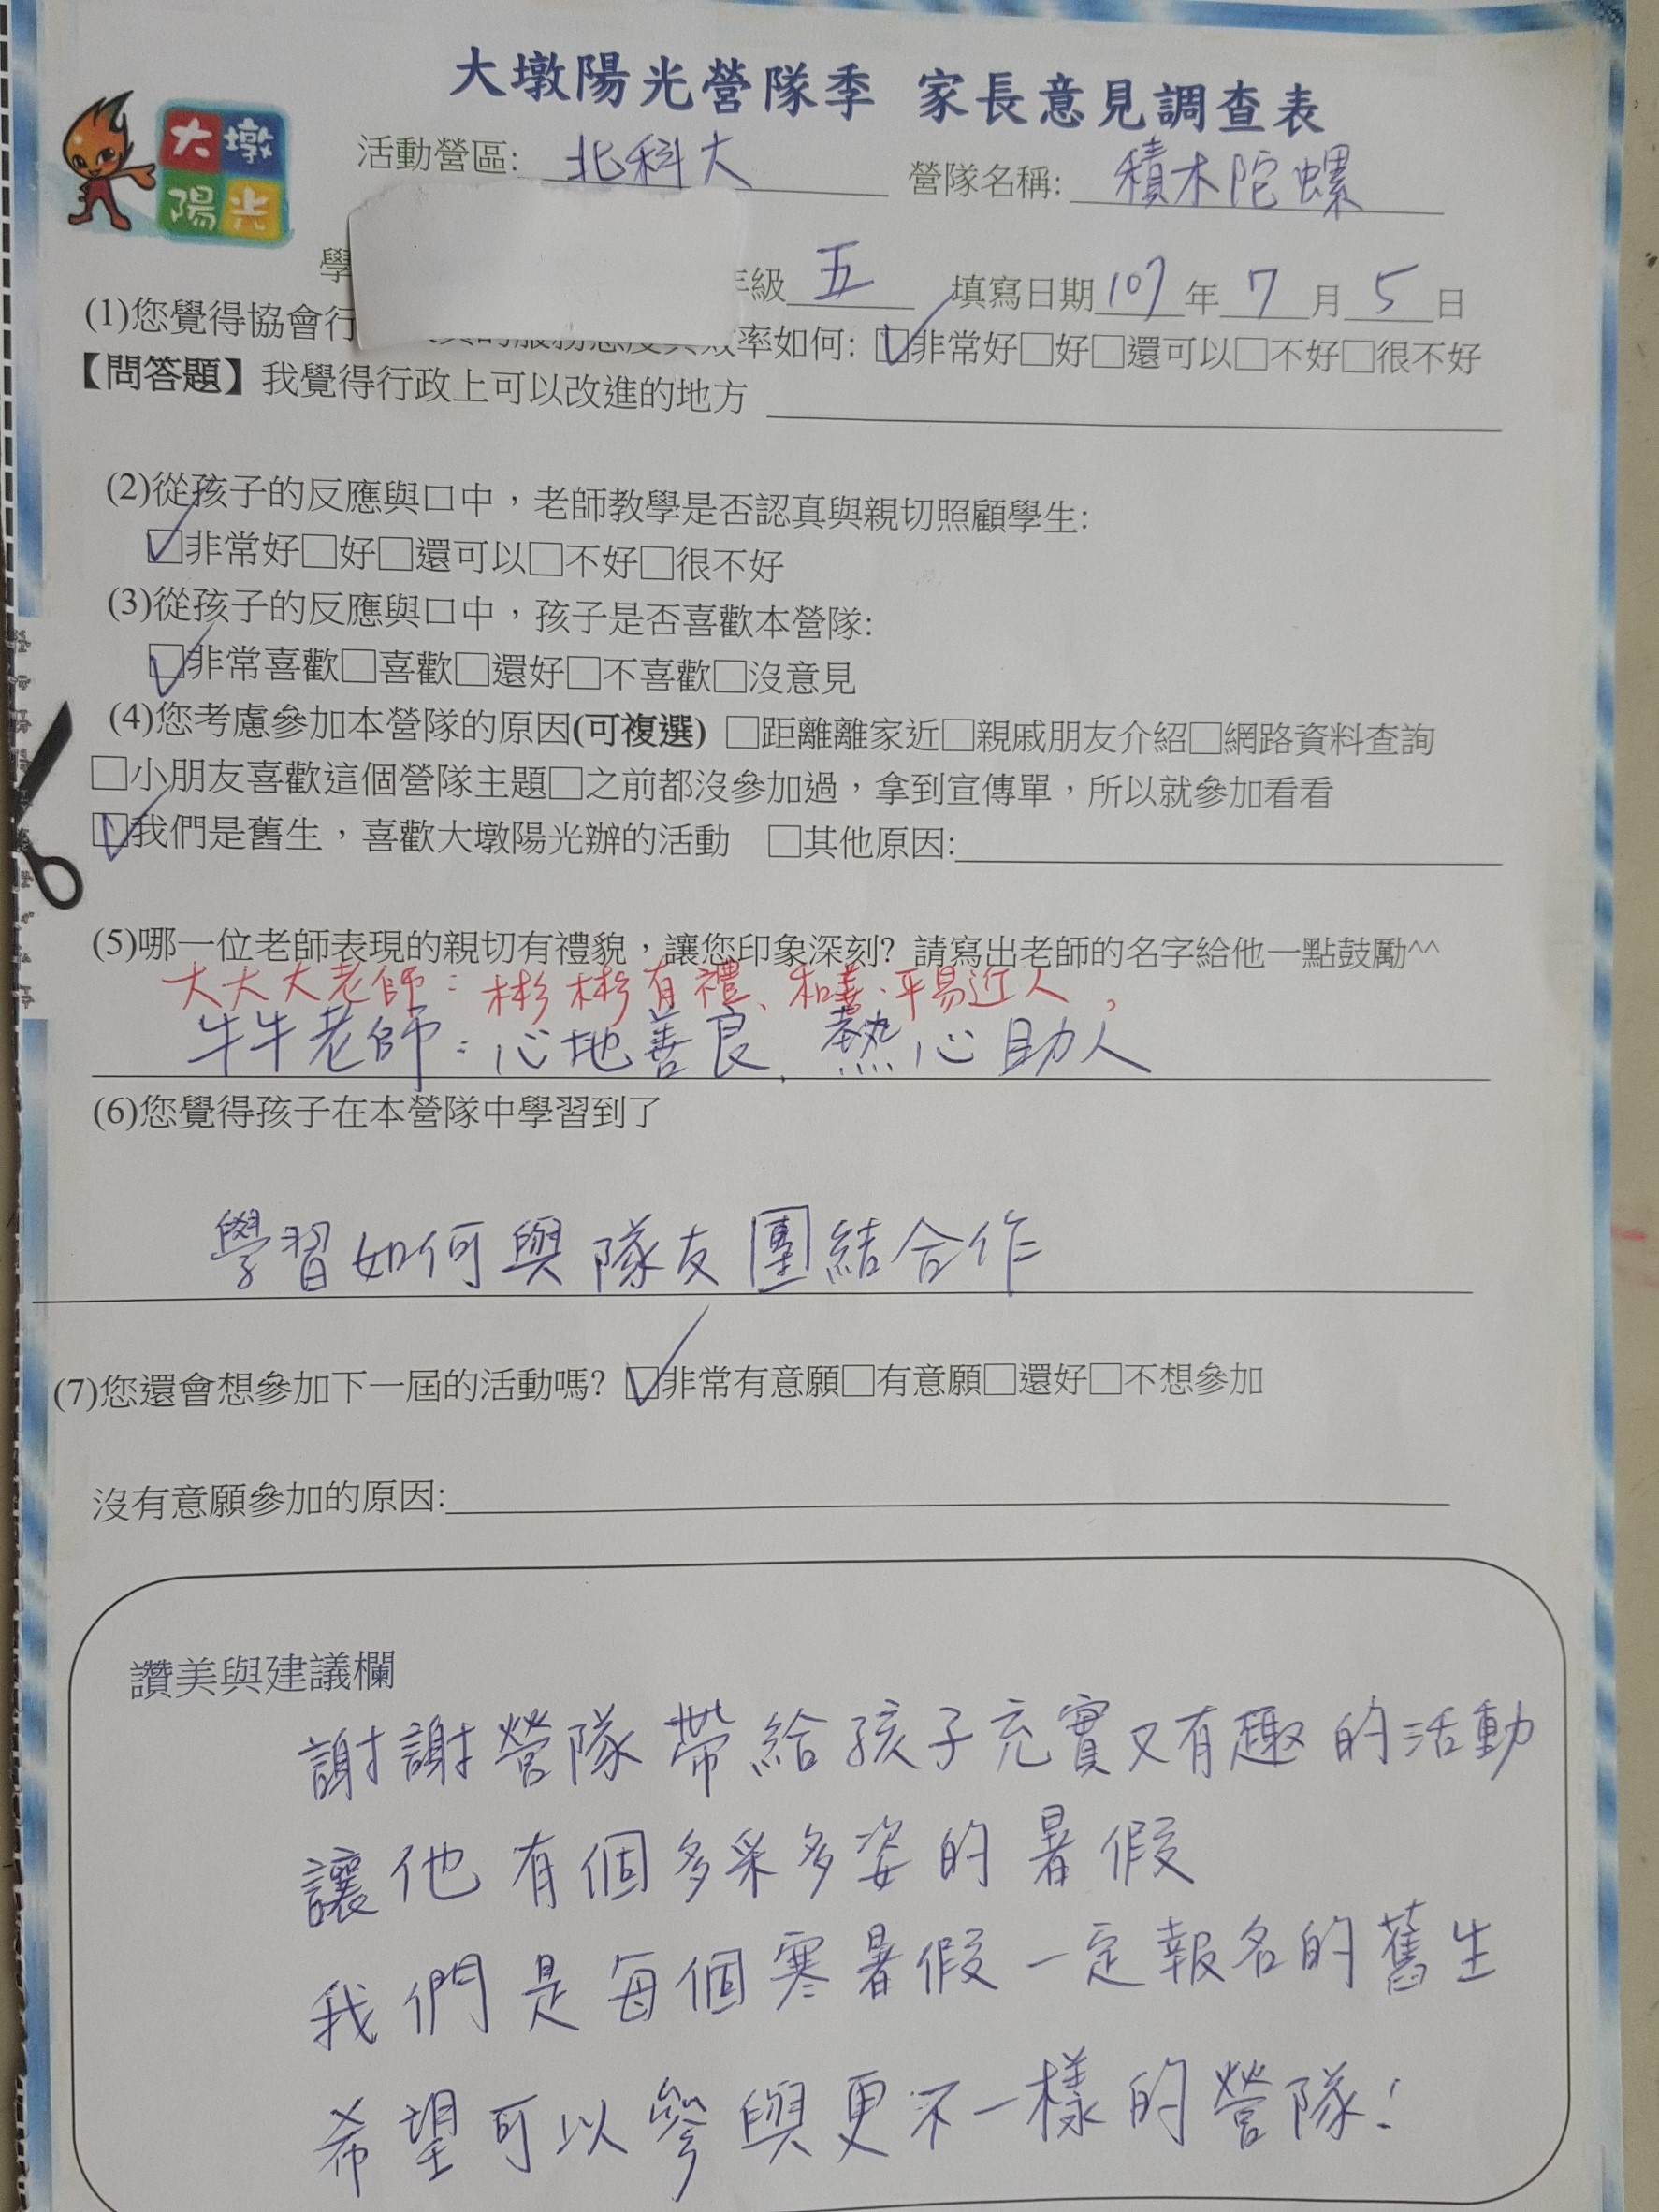 大墩陽光營隊季 家長意見調查表
大墩
陽光
活動營區: 北科大 營隊名稱: 積木陀螺
學 年級 五 填寫日期 107 年 7 月 5 日
(1)您覺得協會行 的服務態度與效率如何: ☑非常好□好□還可以□不好□很不好
【問答題】我覺得行政上可以改進的地方
(2)從孩子的反應與口中,老師教學是否認真與親切照顧學生:
☑非常好□好□還可以□不好□很不好
(3)從孩子的反應與口中,孩子是否喜歡本營隊:
☑非常喜歡□喜歡□還好□不喜歡□沒意見
(4)您考慮參加本營隊的原因(可複選) □距離離家近□親戚朋友介紹□網路資料查詢
□小朋友喜歡這個營隊主題□之前都沒參加過,拿到宣傳單,所以就參加看看
☑我們是舊生,喜歡大墩陽光辦的活動 □其他原因:
(5)哪一位老師表現的親切有禮貌,讓您印象深刻? 請寫出老師的名字給他一點鼓勵^^
大大大老師:彬彬有禮、和善、平易近人,
牛牛老師:心地善良、熱心助人
(6)您覺得孩子在本營隊中學習到了
學習如何與隊友團結合作
(7)您還會想參加下一屆的活動嗎? ☑非常有意願□有意願□還好□不想參加
沒有意願參加的原因:
讚美與建議欄
謝謝營隊帶給孩子充實又有趣的活動
讓他有個多采多姿的暑假
我們是每個寒暑假一定報名的舊生
希望可以參與更不一樣的營隊!